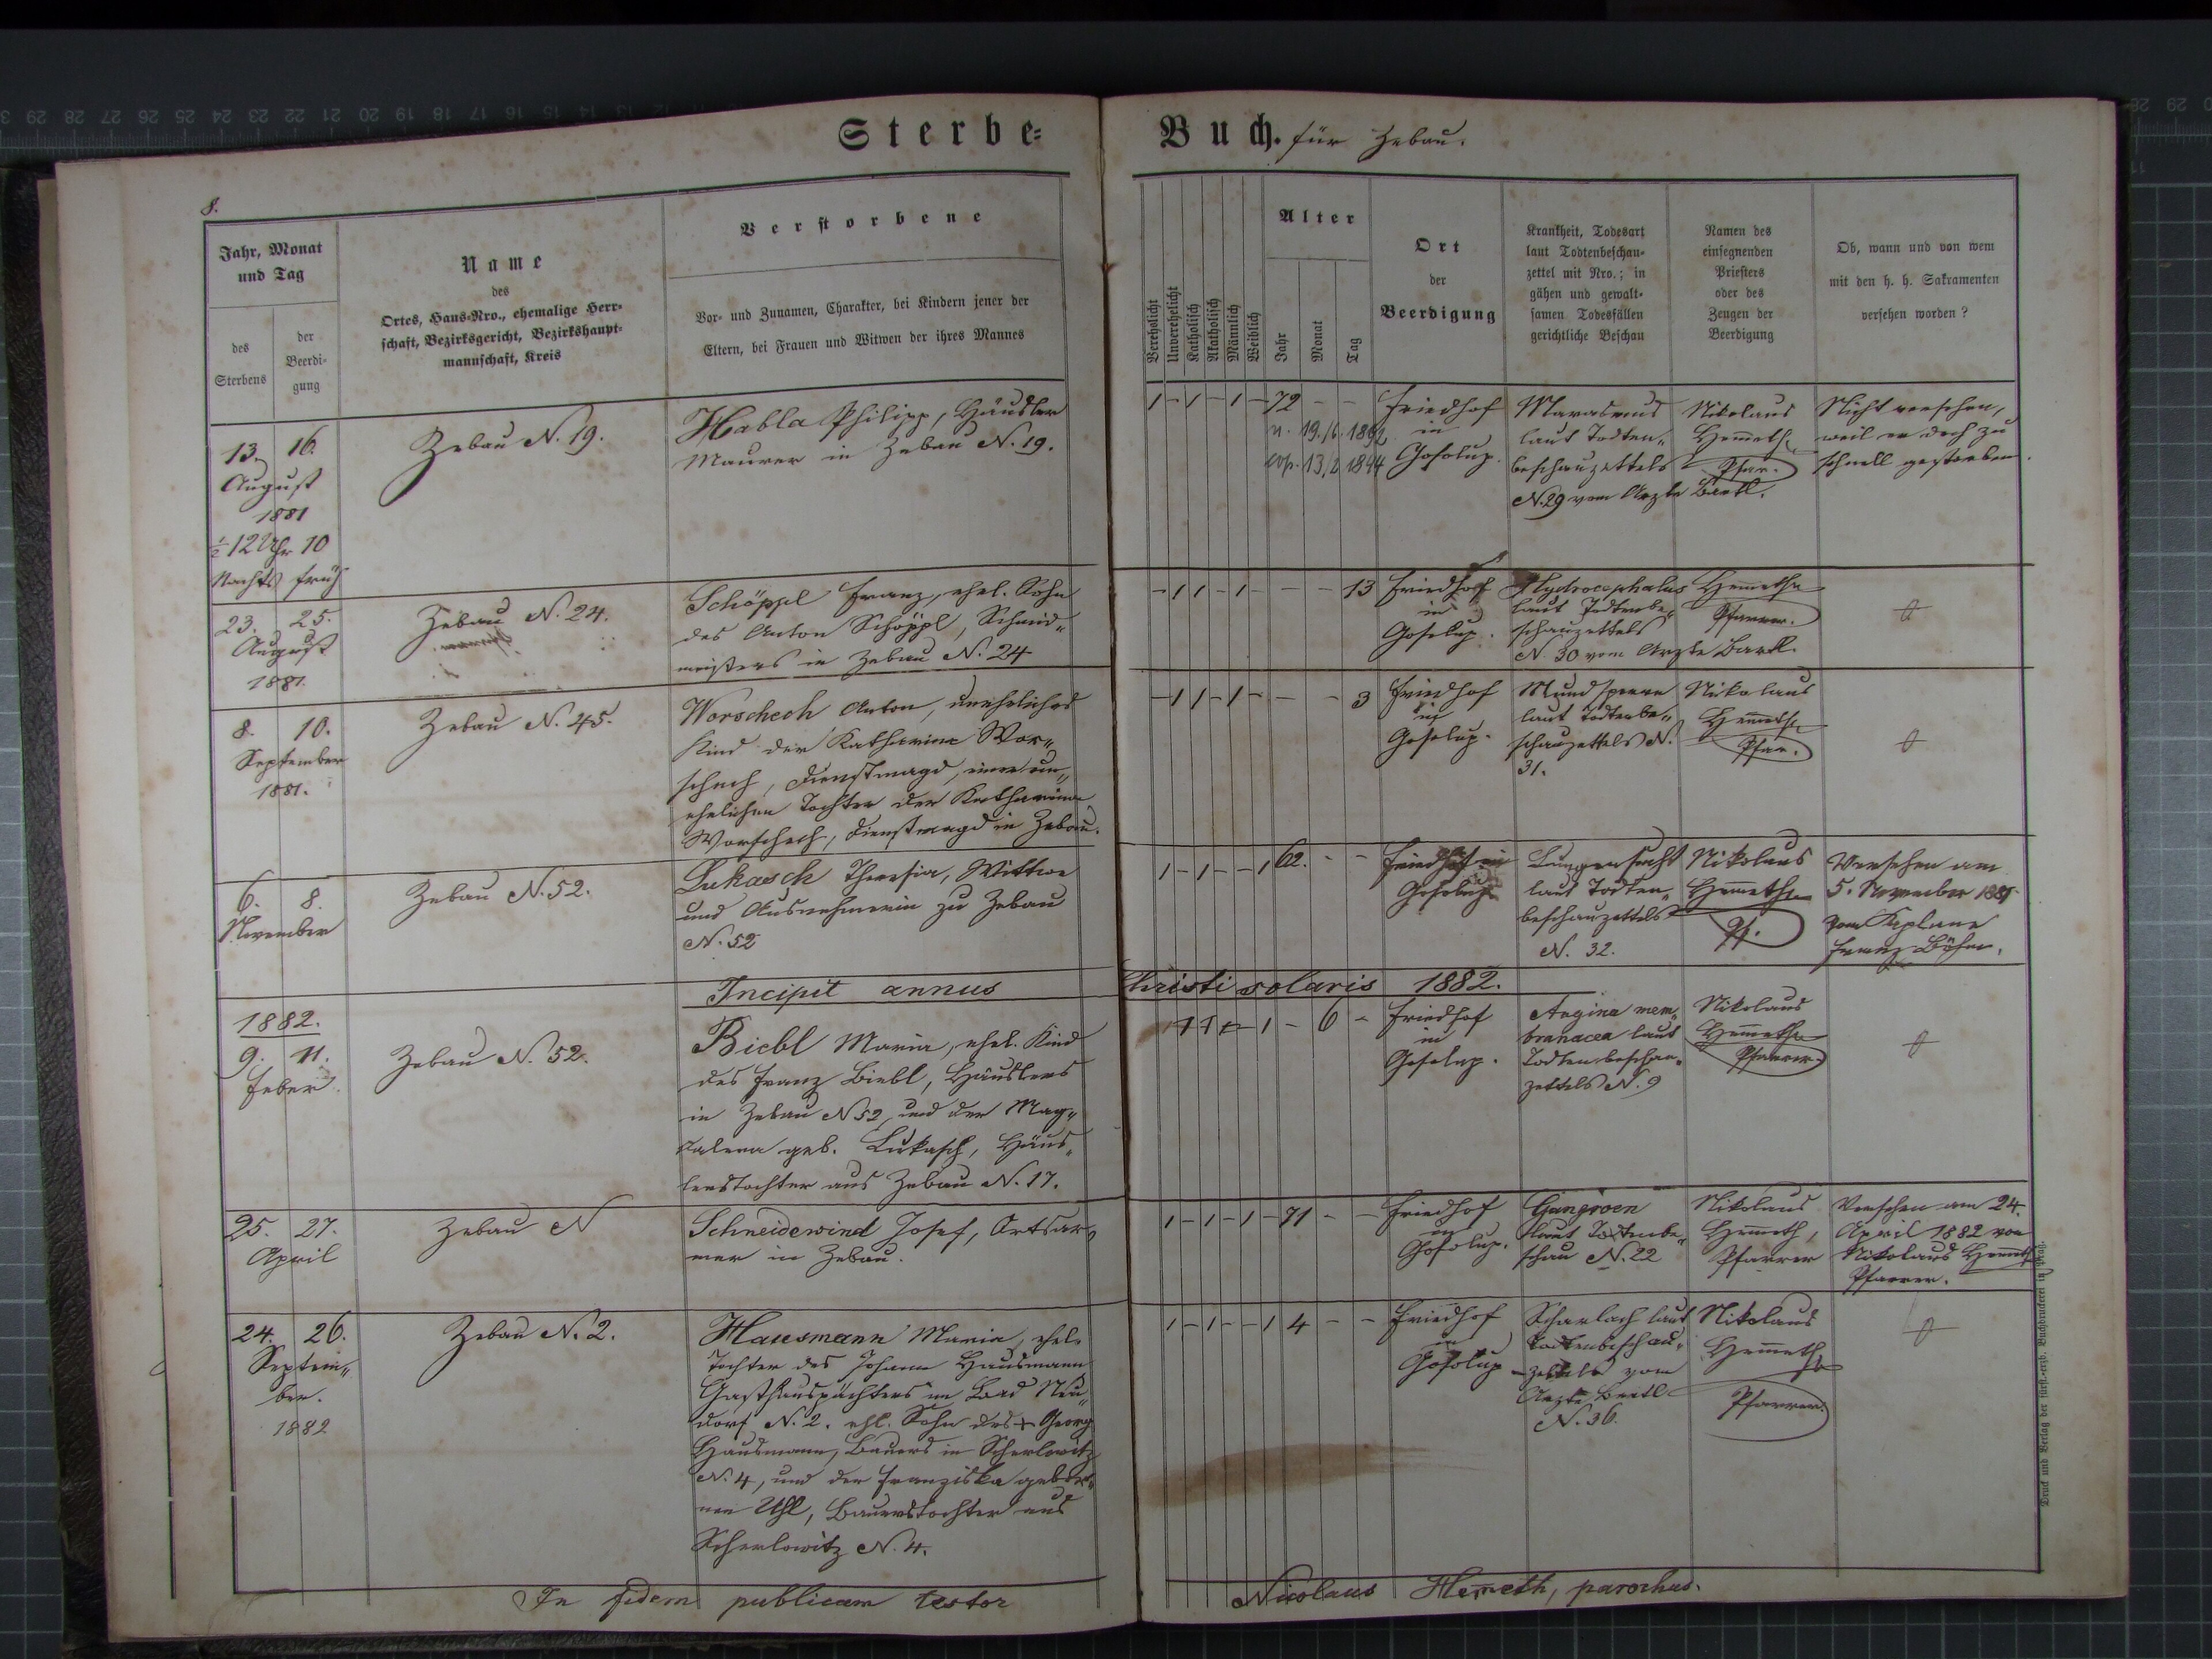 Sterbe-
Buch. für Zebau.
8.
Jahr, Monat
und Tag
des
Sterbens
der
Beerdi-
gung
Name
des
Ortes, Haus-Nro., ehemalige Herr-
schaft, Bezirksgericht, Bezirkshaupt-
mannschaft, Kreis
Verstorbene
Vor- und Zunamen, Charakter, bei Kindern jener der
Eltern, bei Frauen und Witwen der ihres Mannes
Verehelicht
Unverehelicht
Katholisch
Akatholisch
Männlich
Weiblich
Alter
Jahr
Monat
Tag
Ort
der
Beerdigung
Krankheit, Todesart
laut Todtenbeschau-
zettel mit Nro.; in
gähen und gewalt-
samen Todesfällen
gerichtliche Beschau
Namen des
einsegnenden
Priesters
oder des
Zeugen der
Beerdigung
Ob, wann und von wem
mit den h. h. Sakramenten
versehen worden?
13. 16.
August
1881
½ 12 Uhr 10
Nachts früh
Zebau N. 19.
Habla Philipp, Häusler
Maurer in Zebau N. 19.
1 - 1 - 1 - 72 - -
n. 19./6. 1802
cop. 13/2 1844
Friedhof
in
Gosolup.
Marasmus
laut Todten„
beschauzettels
N. 29 vom Arzte Bartl.
Nikolaus
Hemeth
Pfar.
Nicht versehen,
weil er doch zu
schnell gestorben.
23. 25.
August
1881.
Zebau N. 24.
Schöppl Franz, ehel. Sohn
des Anton Schöppl, Schmid„
meisters in Zebau N. 24
- 1 1 - 1 - - - 13
Friedhof
in
Gosolup.
Hydrocephalus
laut Todtenbe„
schauzettels
N. 30 vom Arzte Bartl.
Hemeth
Pfarrer.
0
8. 10.
September
1881.
Zebau N. 45.
Worschech Anton, uneheliches
Kind der Katharina Wor„
schech, Dienstmagd, einer un„
ehelichen Tochter der Katharina
Worschech, Dienstmagd in Zebau.
- 1 1 - 1 - - - 3
Friedhof
in
Gosolup.
Mundsperre
laut Todtenbe„
schauzettels N.
31.
Nikolaus
Hemeth
Pfar.
0
6. 8.
November
Zebau N. 52.
Lukasch Theresia, Wittwe
und Ausnehmerin zu Zebau
N. 52
1 - 1 - - 1 62. - -
Friedhof in
Gosolup
Lungensucht
laut Todten„
beschauzettels
N. 32.
Nikolaus
Hemeth
Pf.
Versehen am
5. November 1881
vom Kaplane
Franz Böhm.
Incipit annus Christi solaris 1882.
1882.
9. 11.
Feber
Zebau N. 52.
Biebl Maria, ehel. Kind
des Franz Biebl, Häuslers
in Zebau N 52, und der Mag„
dalena geb. Lukasch, Häus„
lerstochter aus Zebau N. 17.
1 - 6 -
Friedhof
in
Gosolup.
Angina mem„
branacea laut
Todtenbeschau„
zettels N. 9
Nikolaus
Hemeth
Pfarrer
0
25. 27.
April
Zebau N
Schneidewind Josef, Ortsar„
mer in Zebau.
1 - 1 - 1 - 71 - -
Friedhof
in
Gosolup.
Gangroen
laut Todtenbe„
schau N. 22
Nikolaus
Hemeth,
Pfarrer
Versehen am 24.
April 1882 von
Nikolaus Hemeth
Pfarrer.
24. 26.
Septem„
ber.
1882
Zebau N. 2.
Hausmann Maria, ehel.
Tochter des Johann Hausmann
Gasthauspächters im Bad Neu„
dorf N. 2. ehl. Sohn des + Georg
Hausmann, Bauers in Scherlowitz
N. 4, und der Franziska gebor„
nen Uhl, Bauerstochter aus
Scherlowitz N. 4.
1 - 1 - - 1 4 - -
Friedhof
in
Gosolup
Scharlach laut
Todtenbeschau„
zettels vom
Arzte Bartl
N. 36.
Nikolaus
Hemeth
Pfarrer.
0
In fidem publicam testor
Nicolaus Hemeth, parochus.
Druck und Verlag der fürst.-erzb. Buchdruckerei in Prag.